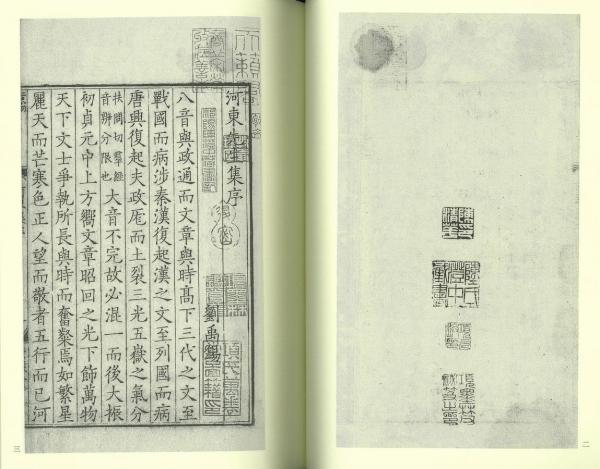 二
河東先生集序
劉禹錫
八音與政通而文章與時高下三代之文至
戰國而病涉秦漢復起漢之文至列國而病
唐興復起夫政厖而土裂三光五嶽之氣分
扶問切羣經
音辨分限也
大音不完故必混一而後大振
初貞元中上方嚮文章昭回之光下飾萬物
天下文士爭執所長與時而奮粲焉如繁星
麗天而芒寒色正人望而敬者五行而已河
三